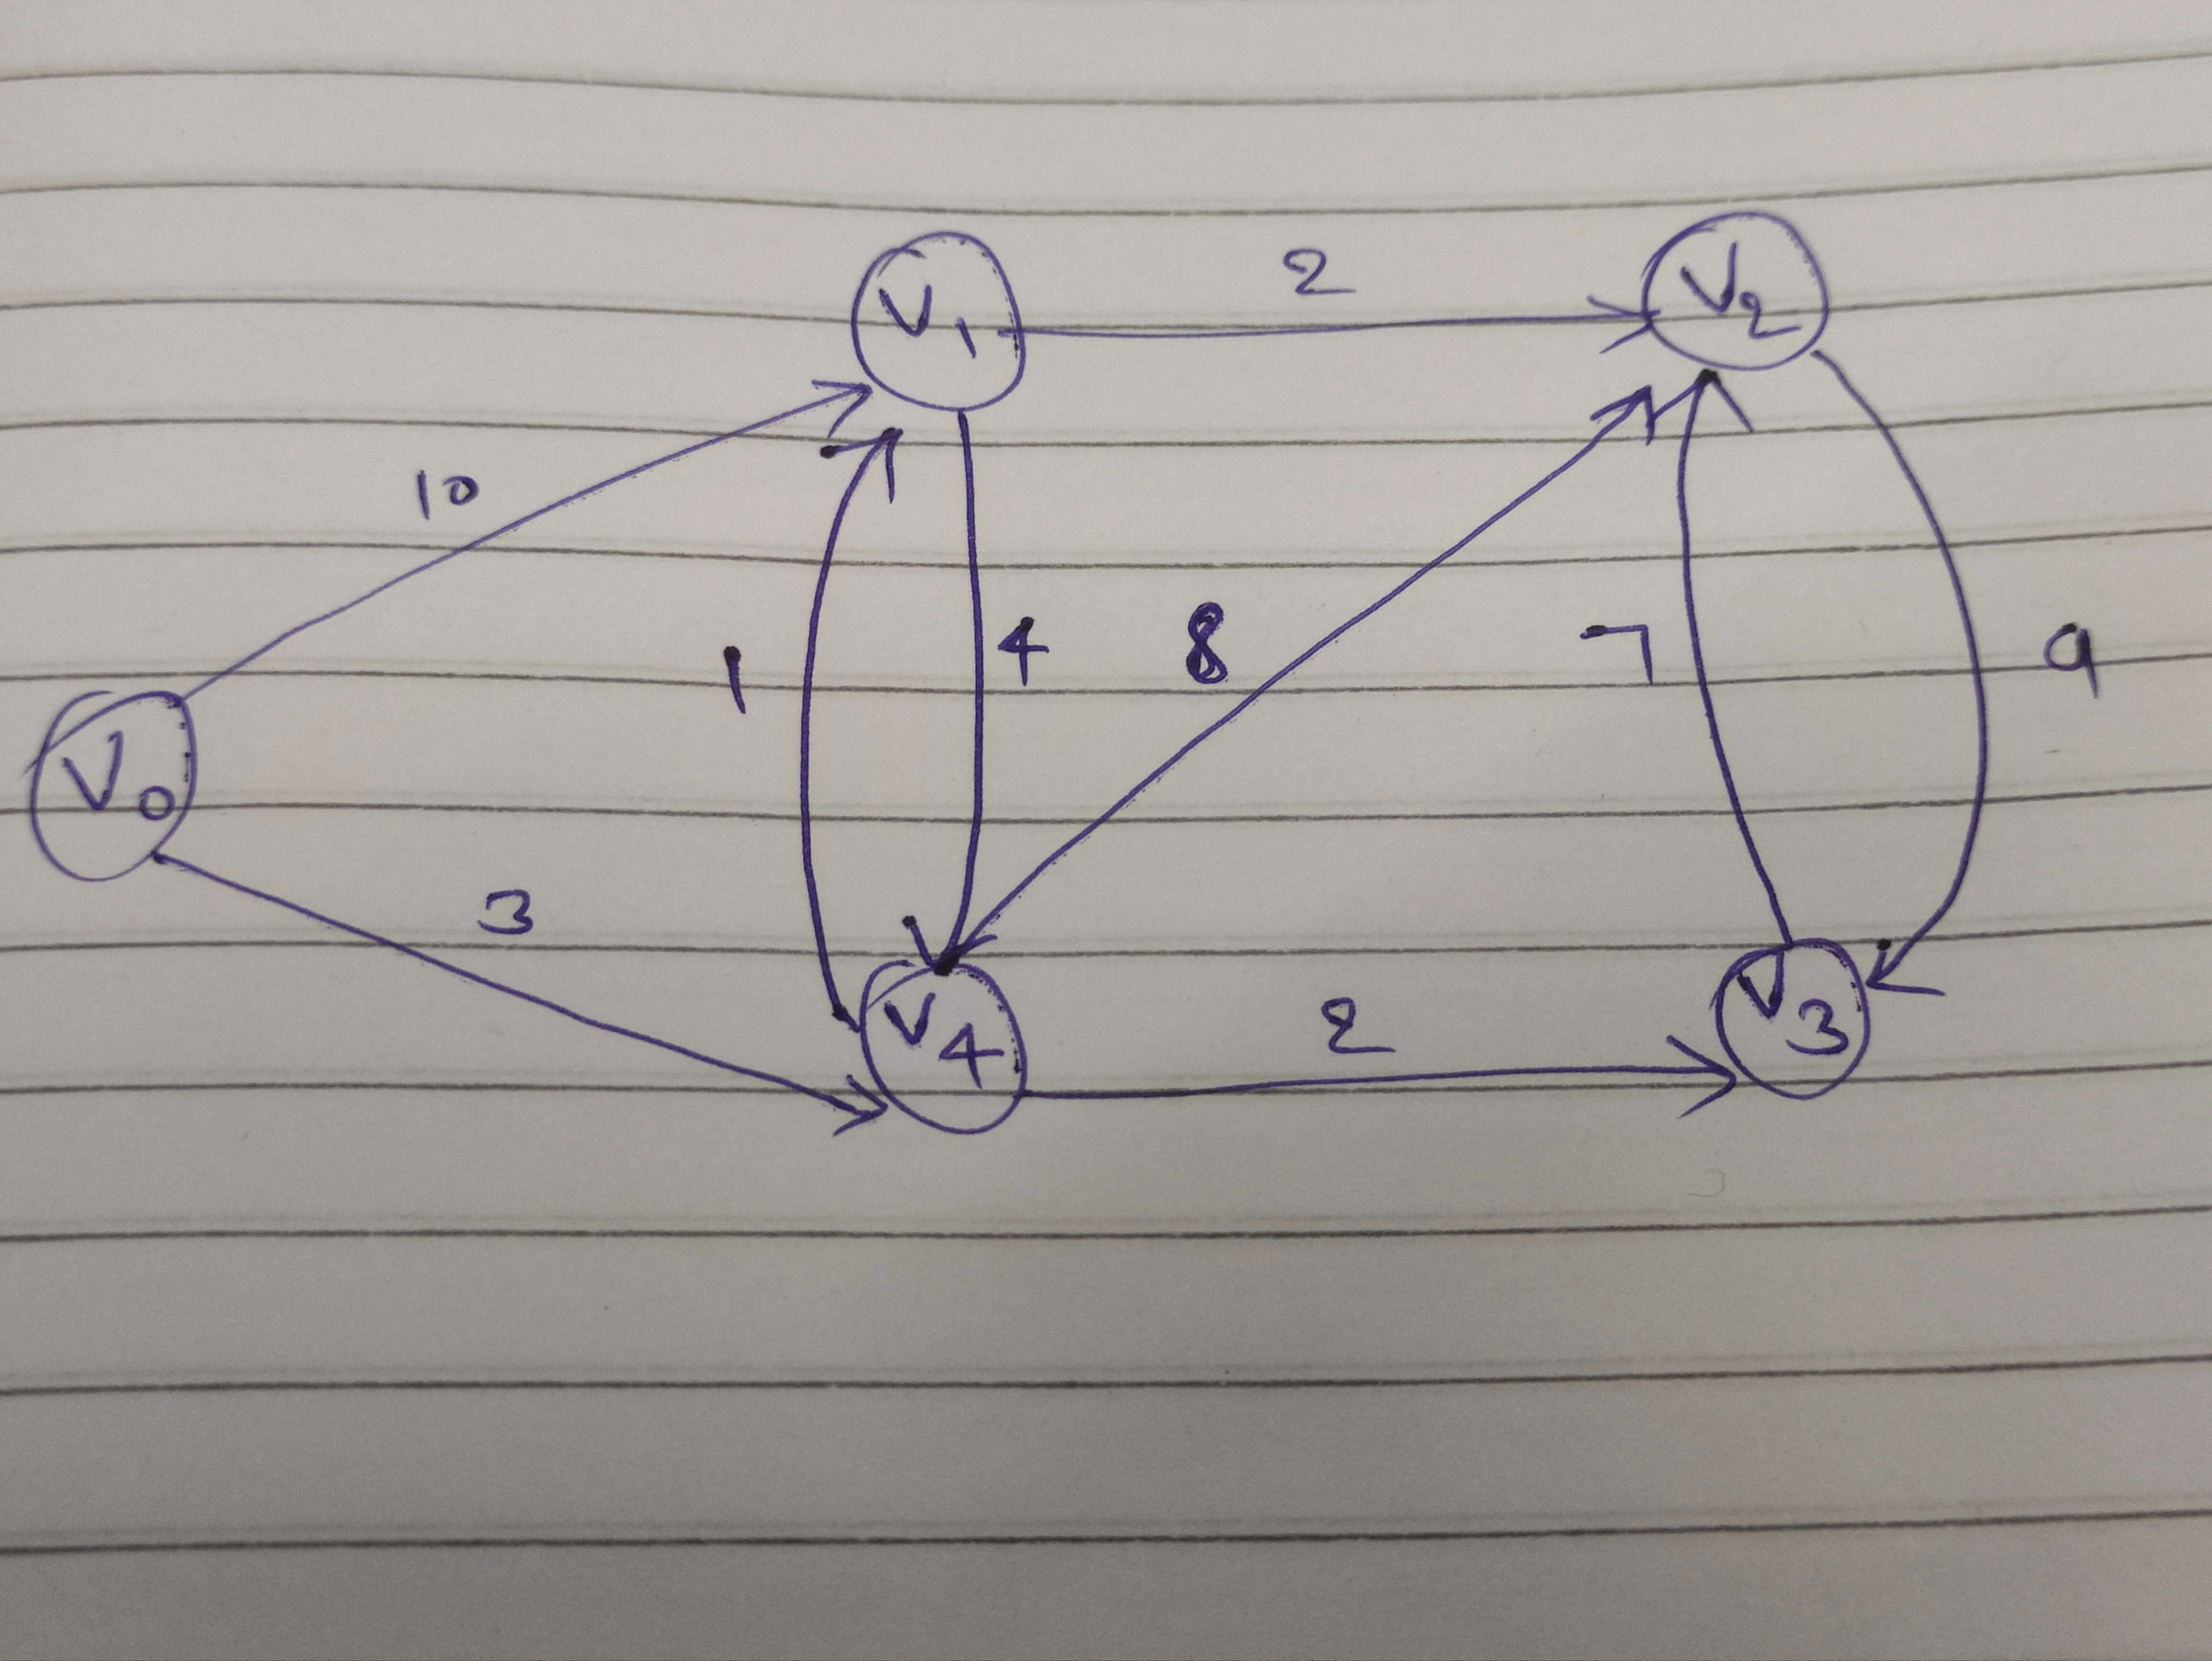 V1 2 V2
10
1 4 8 7 9
V0
3
V4 2 V3